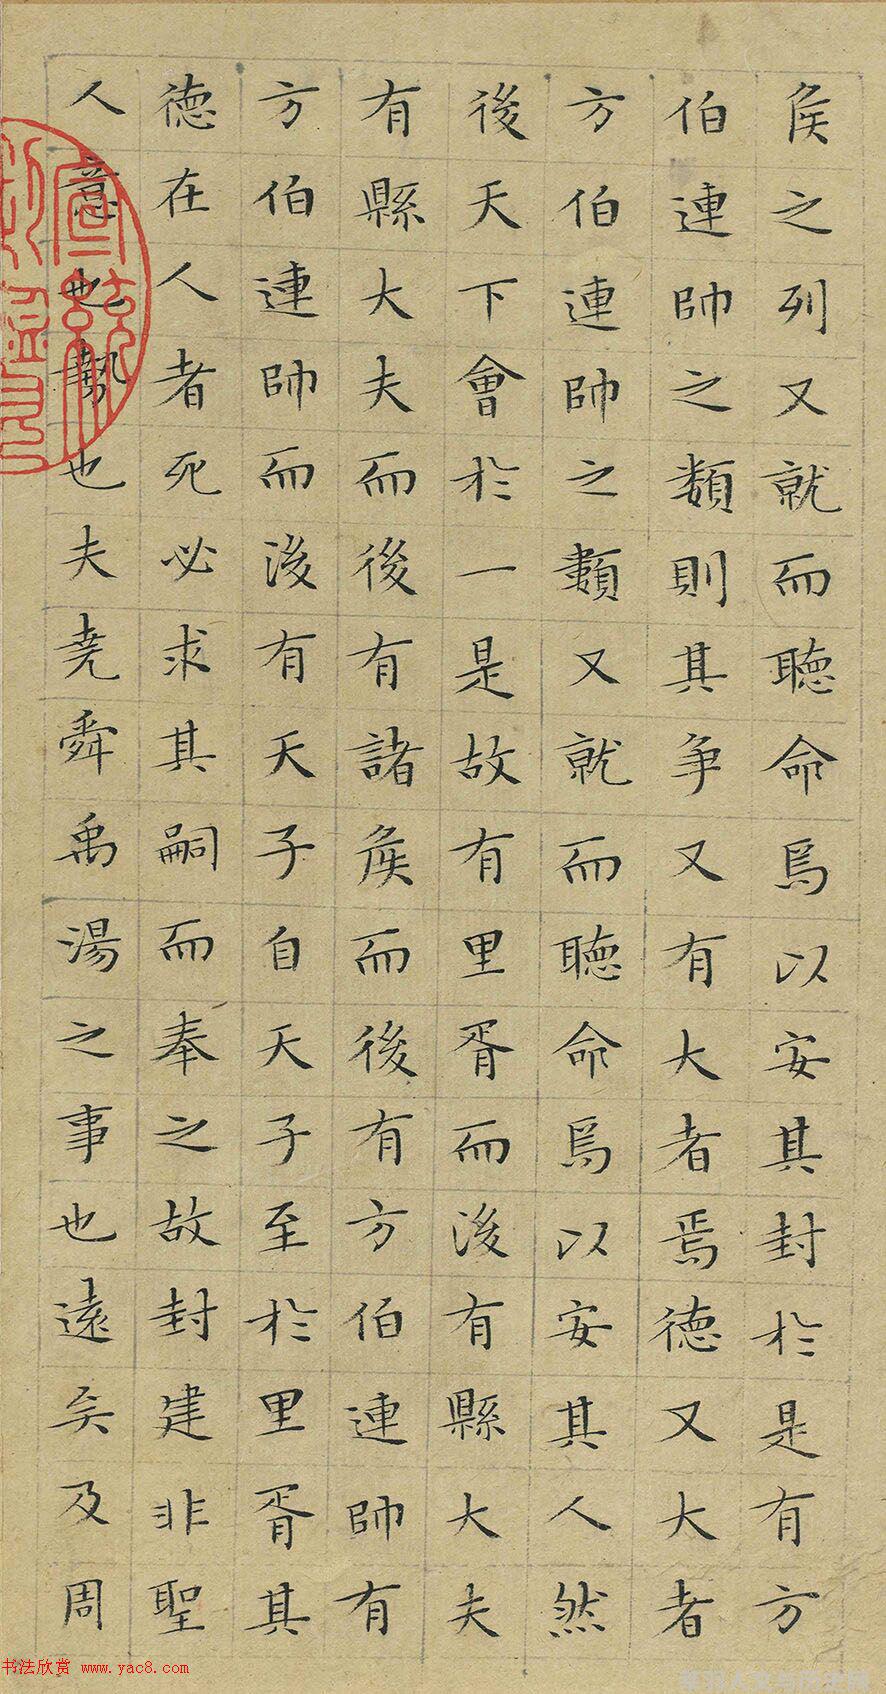 侯之列又就而聽命焉以安其封於是有方
伯連帥之類則其争又有大者焉德又大者
方伯連帥之類又就而聽命焉以安其人然
後天下會於一是故有里胥而後有縣大夫
有縣大夫而後有諸侯而後有方伯連帥有
方伯連帥而後有天子自天子至於里胥其
德在人者死必求其嗣而奉之故封建非聖
人意也勢也夫堯舜禹湯之事也遠矣及周
书法欣赏 www.yac8.com